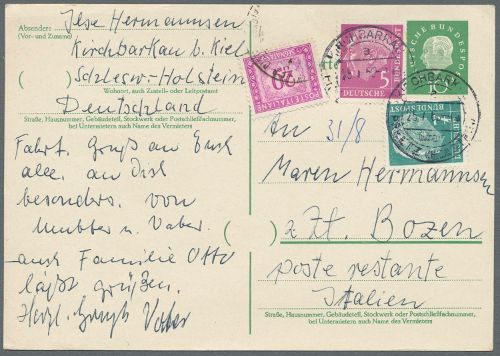 Absender:
(Vor- und Zuname)
Ilse Hermannsen
Kirchbarkau b. Kiel
( ) Schlesw-Holstein
Wohnort, auch Zustell- oder Leitpostamt
Deutschland
Straße, Hausnummer, Gebäudeteil, Stockwerk oder Postschließfachnummer,
bei Untermietern auch Name des Vermieters
Gruß an Euch
alle. an Dich
besonders. von
Mutter u. Vater.
auch Familie Otto
läßt grüßen.
Herzl. Gruß Vater
POSTE ITALIANE
20
SEGNATASSE
5
DEUTSCHE BUNDESPOST
DEUTSCHE BUNDESPOST
10
DEUTSCHE BUNDESPOST
KIRCHBARKAU
An 31/8
Maren Hermannsen
( ) z. Zt. Bozen
poste restante
Italien
Straße, Hausnummer, Gebäudeteil, Stockwerk oder Postschließfachnummer,
bei Untermietern auch Name des Vermieters